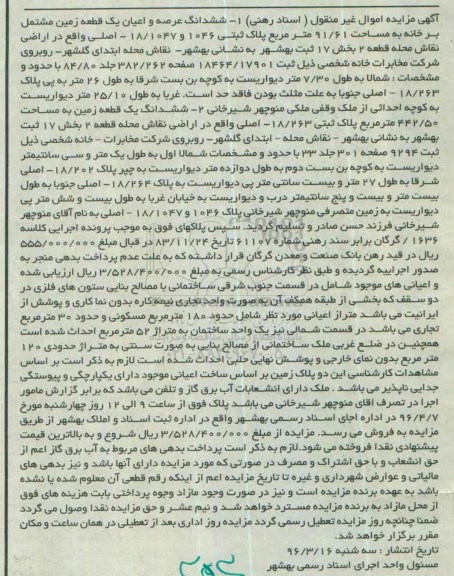 آگهی مزایده اموال غیر منقول ( اسناد رهنی) ۱- ششدانگ عرصه و اعیان یک قطعه زمین مشتمل
بر خانه به مساحت ۹۱/۶۱ متر مربع پلاک ثبتی ۱۰۴۶ و ۱۸/۱۰۴۷ - اصلی واقع در اراضی
نقاش محله قطعه ۲ بخش ۱۷ ثبت بهشهر به نشانی بهشهر- نقاش محله ابتدای گلشهر- روبروی
شرکت مخابرات خانه شخصی ذیل ثبت ۱۸۴۶۴/۱۷۹۰۱ صفحه ۳۸۲/۲۶۲ جلد ۸۴/۸۰ با حدود و
مشخصات : شمالا به طول ۷/۳۰ متر دیواریست به کوچه بن بست شرقا به طول ۲۶ متر به پی پلاک
۱۸/۲۶۳ - اصلی جنوبا به علت مثلث بودن فاقد حد است. غربا به طول ۲۵/۱۰ متر دیواریست
به کوچه احداثی از ملک وقفی ملکی منوچهر شیرخانی ۲- ششدانگ یک قطعه زمین به مساحت
۴۴۲/۵۰ مترمربع پلاک ثبتی ۱۸/۲۶۳- اصلی واقع در اراضی نقاش محله قطعه ۲ بخش ۱۷ ثبت
بهشهر به نشانی بهشهر - نقاش محله - ابتدای گلشهر- روبروی شرکت مخابرات - خانه شخصی ذیل
ثبت ۹۲۹۴ صفحه ۳۰۱ جلد ۳۳ با حدود و مشخصات شمالا اول به طول یک متر و سی سانتیمتر
دیواریست به کوچه بن بست دوم به طول دوازده متر دیواریست به چپر پلاک ۱۸/۲۰۲- اصلی
شرقا به طول ۲۷ متر و بیست سانتی متر پی دیواریست به پلاک ۱۸/۲۶۴- اصلی جنوبا به طول
بیست متر و بیست و پنج سانتیمتر درب و دیواریست به خیابان غربا به طول بیست و شش متر پی
دیواریست به زمین متصرفی منوچهر شیرخانی پلاک ۱۰۴۶ و ۱۸/۱۰۴۷ - اصلی به نام آقای منوچهر
شیرخانی فرزند حسن صادر و تسلیم گردید. سپس پلاکهای فوق به موجب پرونده اجرایی کلاسه
۱۶۳۶ / گرگان برابر سند رهنی شماره ۶۱۱۰۷ تاریخ ۸۳/۱۱/۲۴ در قبال مبلغ ۵۵۵/۰۰۰/۰۰۰
ریال در قید رهن بانک صنعت و معدن گرگان قرار داشته که به علت عدم پرداخت بدهی منجر به
صدور اجراییه گردیده و طبق نظر کارشناس رسمی به مبلغ ۳/۵۲۸/۴۰۰/۰۰۰ ریال ارزیابی شده
و اعیانی های موجود شامل در قسمت جنوب شرقی ساختمانی با مصالح بنایی ستون های فلزی در
دو سقف که بخشی از طبقه همکف آن به صورت واحد تجاری نیمه کاره بدون نما کاری و پوشش از
ایرانیت می باشد متراز اعیانی مورد نظر شامل حدود ۱۸۰ مترمربع مسکونی و حدود ۳۰ مترمربع
تجاری می باشد در قسمت شمالی نیز یک واحد ساختمان به متراژ ۵۲ مترمربع احداث شده است
همچنین در ضلع غربی ملک ساختمانی از مصالح بنایی به صورت سنتی به متراژ حدودی ۱۲۰
متر مربع بدون نمای خارجی و پوشش نهایی حلبی احداث شده است لازم به ذکر است بر اساس
مشاهدات کارشناسی این دو پلاک زمین بر اساس ساخت اعیانی موجود دارای یکپارچگی و پیوستگی
جدایی ناپذیر می باشد . ملک دارای انشعابات آب برق گاز و تلفن می باشد که برابر گزارش مامور
اجرا در تصرف آقای منوچهر شیرخانی می باشد پلاک فوق از ساعت ۹ الی ۱۲ روز چهارشنبه مورخ
۹۶/۴/۷ در اداره اجای اسناد رسمی بهشهر واقع در اداره ثبت اسناد و املاک بهشهر از طریق
مزایده به فروش می رسد. مزایده از مبلغ ۳/۵۲۸/۴۰۰/۰۰۰ ریال شروع و به بالاترین قیمت
پیشنهادی نقدا فروخته می شود.لازم به ذکر است پرداخت بدهی های مربوط به آب برق گاز اعم از
حق انشعاب و یا حق اشتراک و مصرف در صورتی که مورد مزایده دارای آنها باشد و نیز بدهی های
مالیاتی و عوارض شهرداری و غیره تا تاریخ مزایده اعم از اینکه رقم قطعی آن معلوم شده یا نشده
باشد به عهده برنده مزایده است و نیز در صورت وجود مازاد وجوه پرداختی بابت هزینه های فوق
از محل مازاد به برنده مزایده مسترد خواهد شد و نیم عشر و حق مزایده نقدا وصول می گردد
ضمنا چنانچه روز مزایده تعطیل رسمی گردد مزایده روز اداری بعد از تعطیلی در همان ساعت و مکان
مقرر برگزار خواهد شد.
تاریخ انتشار : سه شنبه ۹۶/۳/۱۶
مسئول واحد اجرای اسناد رسمی بهشهر